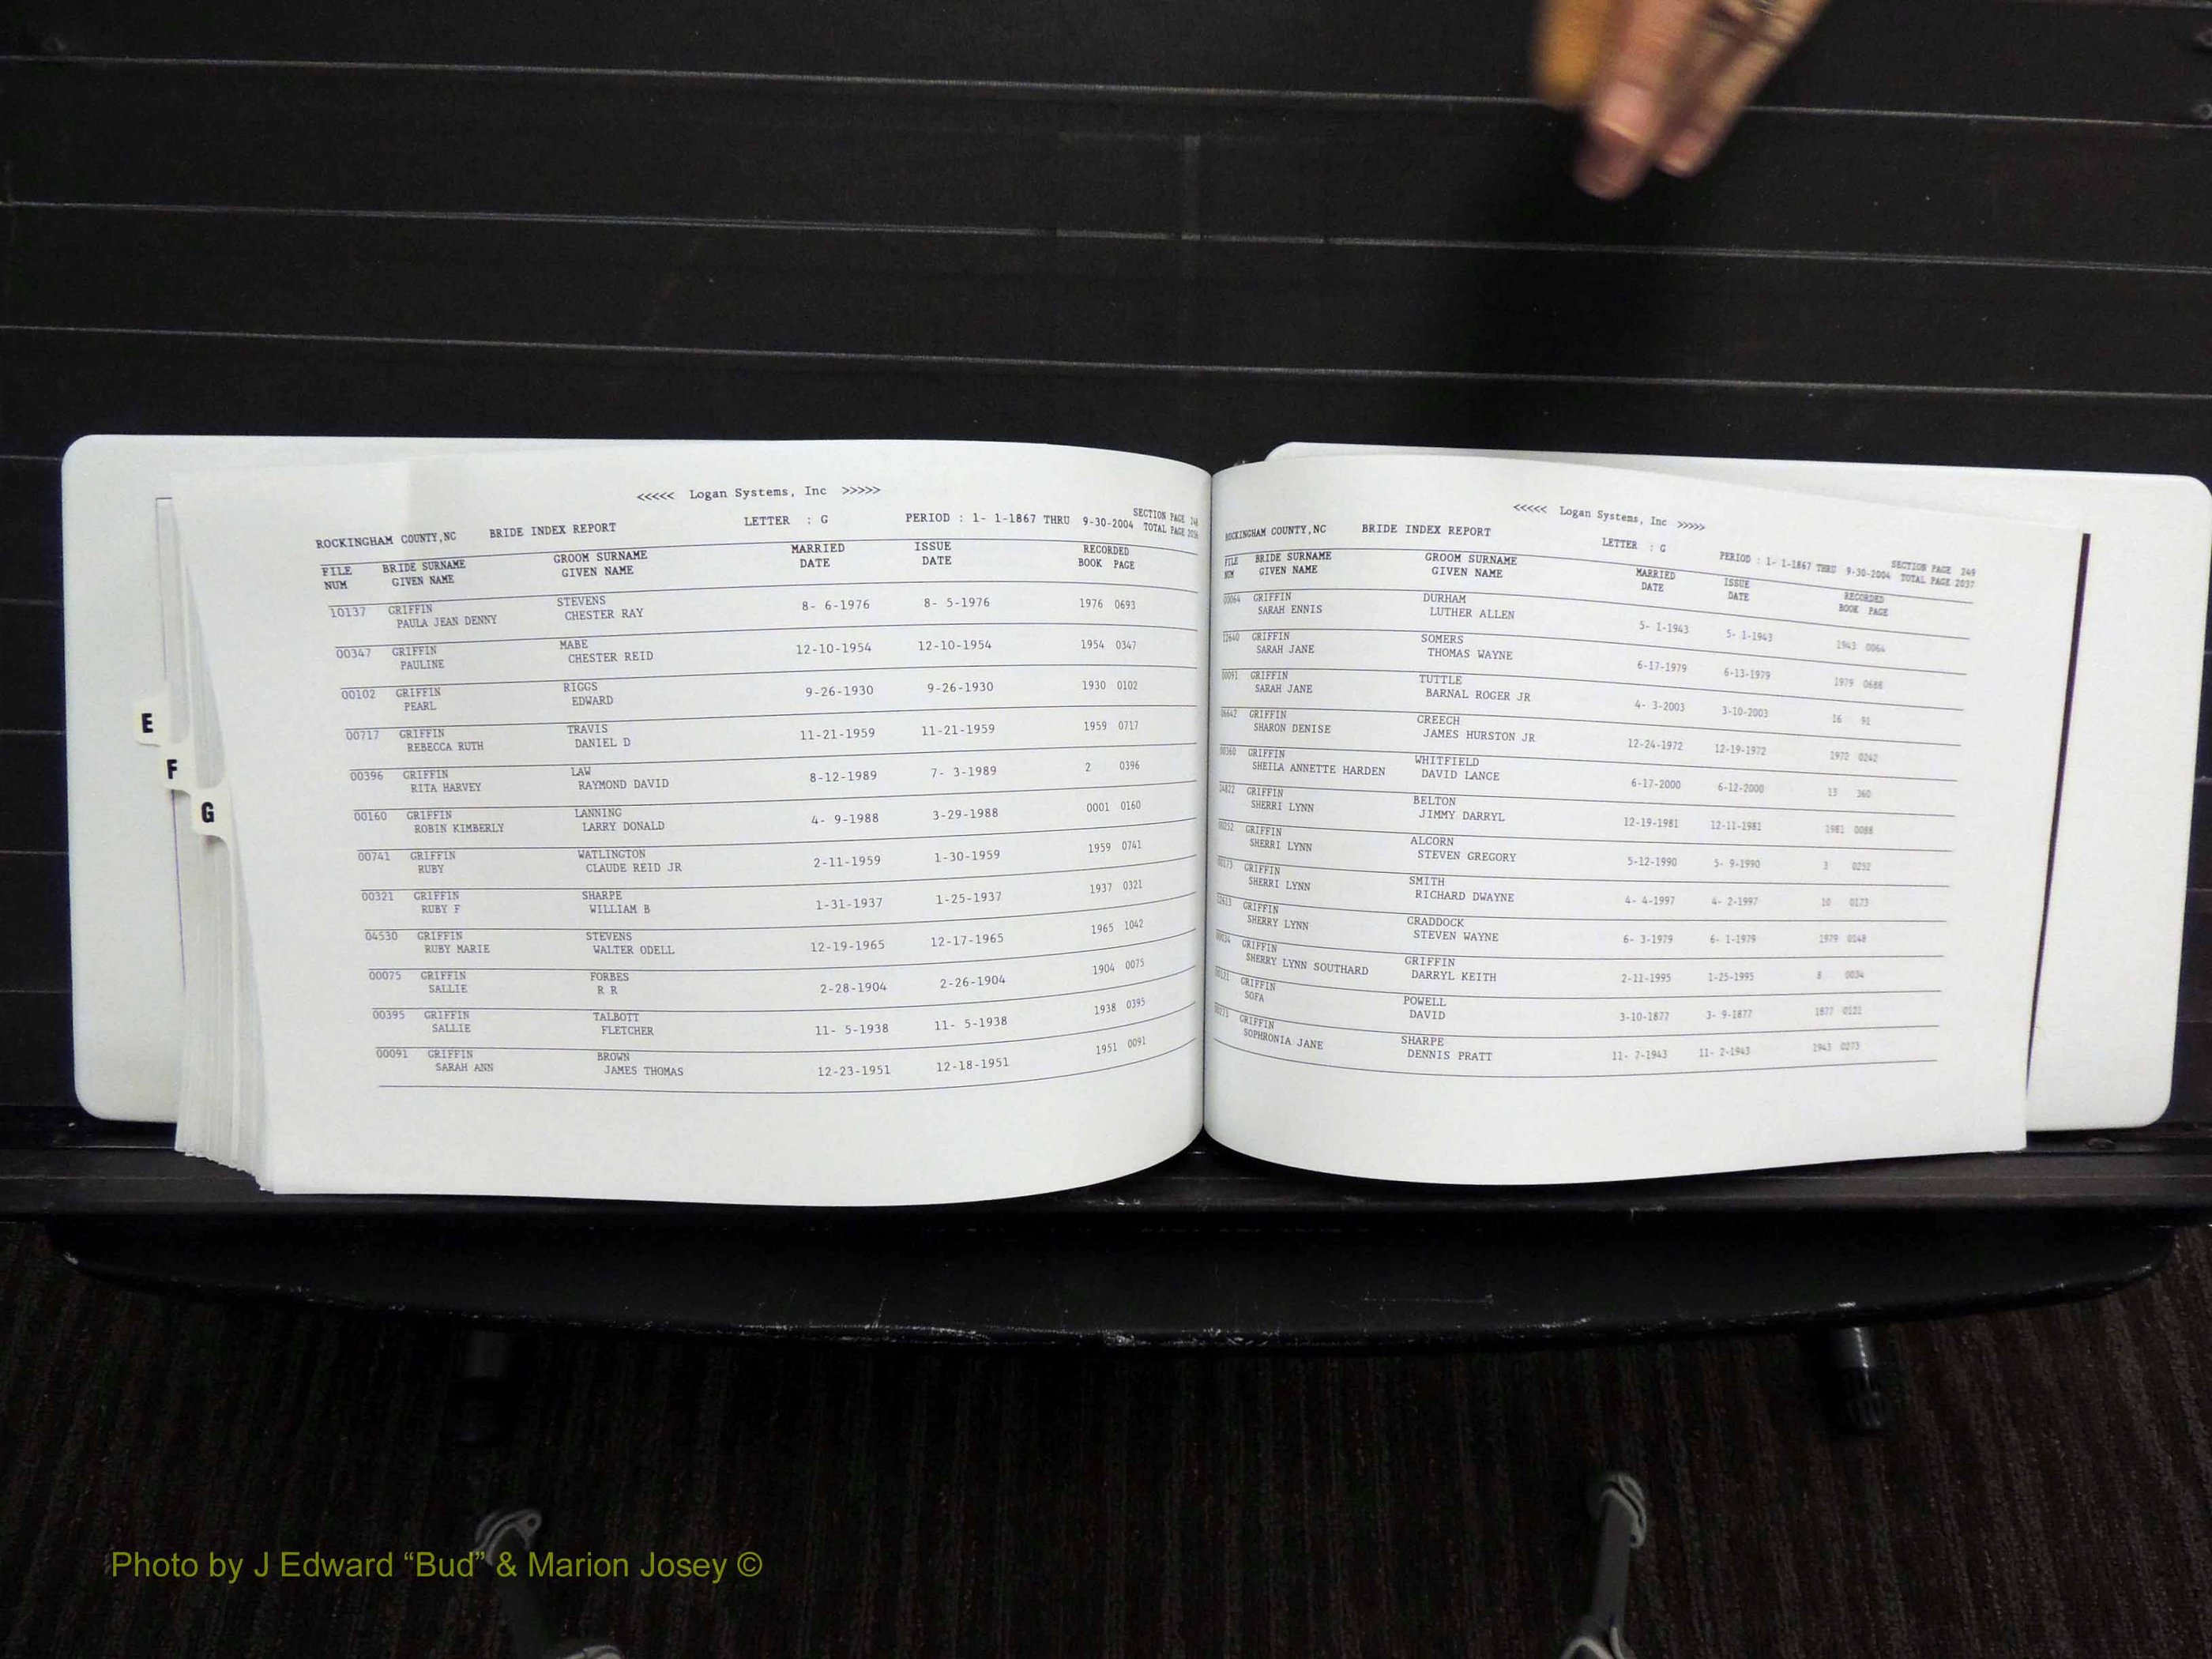 E
F
G
<<<<< Logan Systems, Inc >>>>>
ROCKINGHAM COUNTY,NC BRIDE INDEX REPORT LETTER : G PERIOD : 1- 1-1867 THRU 9-30-2004 SECTION PAGE 248
TOTAL PAGE 2036
FILE BRIDE SURNAME GROOM SURNAME MARRIED ISSUE RECORDED
NUM GIVEN NAME GIVEN NAME DATE DATE BOOK PAGE
10137 GRIFFIN STEVENS 8- 6-1976 8- 5-1976 1976 0693
PAULA JEAN DENNY CHESTER RAY
00347 GRIFFIN MABE 12-10-1954 12-10-1954 1954 0347
PAULINE CHESTER REID
00102 GRIFFIN RIGGS 9-26-1930 9-26-1930 1930 0102
PEARL EDWARD
00717 GRIFFIN TRAVIS 11-21-1959 11-21-1959 1959 0717
REBECCA RUTH DANIEL D
00396 GRIFFIN LAW 8-12-1989 7- 3-1989 2 0396
RITA HARVEY RAYMOND DAVID
00160 GRIFFIN LANNING 4- 9-1988 3-29-1988 0001 0160
ROBIN KIMBERLY LARRY DONALD
00741 GRIFFIN WATLINGTON 2-11-1959 1-30-1959 1959 0741
RUBY CLAUDE REID JR
00321 GRIFFIN SHARPE 1-31-1937 1-25-1937 1937 0321
RUBY F WILLIAM B
04530 GRIFFIN STEVENS 12-19-1965 12-17-1965 1965 1042
RUBY MARIE WALTER ODELL
00075 GRIFFIN FORBES 2-28-1904 2-26-1904 1904 0075
SALLIE R R
00395 GRIFFIN TALBOTT 11- 5-1938 11- 5-1938 1938 0395
SALLIE FLETCHER
00091 GRIFFIN BROWN 12-23-1951 12-18-1951 1951 0091
SARAH ANN JAMES THOMAS
<<<<< Logan Systems, Inc >>>>>
ROCKINGHAM COUNTY,NC BRIDE INDEX REPORT LETTER : G PERIOD : 1- 1-1867 THRU 9-30-2004 SECTION PAGE 249
TOTAL PAGE 2037
FILE BRIDE SURNAME GROOM SURNAME MARRIED ISSUE RECORDED
NUM GIVEN NAME GIVEN NAME DATE DATE BOOK PAGE
00064 GRIFFIN DURHAM 5- 1-1943 5- 1-1943 1943 0064
SARAH ENNIS LUTHER ALLEN
12640 GRIFFIN SOMERS 6-17-1979 6-13-1979 1979 0688
SARAH JANE THOMAS WAYNE
00091 GRIFFIN TUTTLE 4- 3-2003 3-10-2003 16 91
SARAH JANE BARNAL ROGER JR
06642 GRIFFIN CREECH 12-24-1972 12-19-1972 1972 0242
SHARON DENISE JAMES HURSTON JR
00360 GRIFFIN WHITFIELD 6-17-2000 6-12-2000 13 360
SHEILA ANNETTE HARDEN DAVID LANCE
14822 GRIFFIN BELTON 12-19-1981 12-11-1981 1981 0088
SHERRI LYNN JIMMY DARRYL
00252 GRIFFIN ALCORN 5-12-1990 5- 9-1990 3 0252
SHERRI LYNN STEVEN GREGORY
00173 GRIFFIN SMITH 4- 4-1997 4- 2-1997 10 0173
SHERRI LYNN RICHARD DWAYNE
GRIFFIN CRADDOCK 6- 3-1979 6- 1-1979 1979
SHERRY LYNN STEVEN WAYNE
00034 GRIFFIN GRIFFIN 2-11-1995 1-25-1995 8 0034
SHERRY LYNN SOUTHARD DARRYL KEITH
00121 GRIFFIN POWELL 3-10-1877 3- 9-1877 1877 0121
SOFA DAVID
00273 GRIFFIN SHARPE 11- 7-1943 11- 2-1943 1943 0273
SOPHRONIA JANE DENNIS PRATT
Photo by J Edward “Bud” & Marion Josey ©